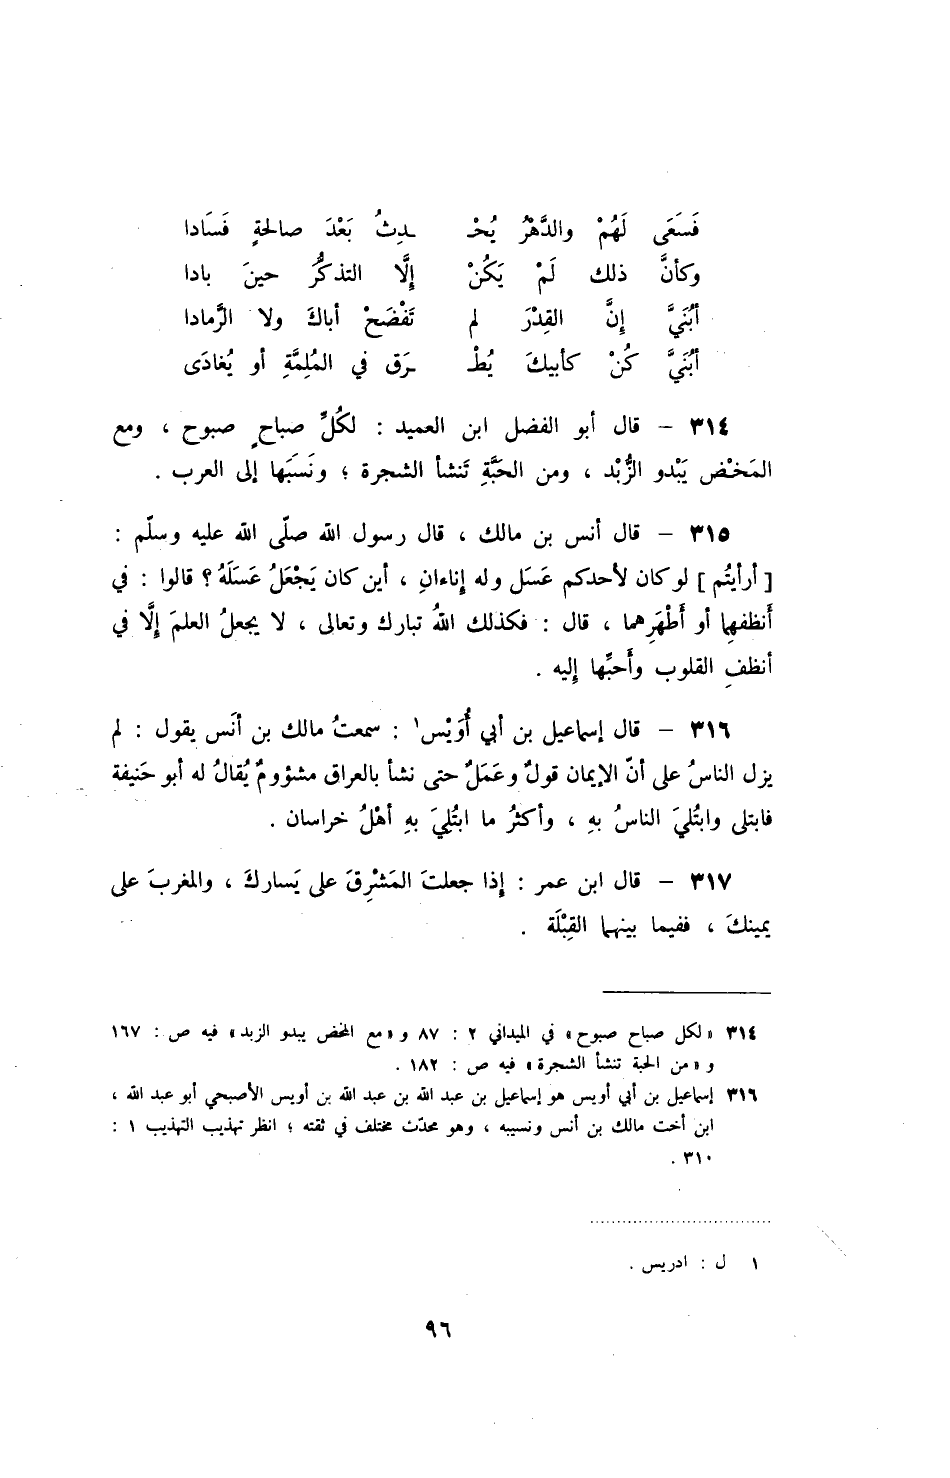 فَسَعَى لَهُمْ والدَّهْرُ يُحْـ ـدِثُ بَعْدَ صالحةٍ فَسَادا
وكأنَّ ذلك لَمْ يَكُنْ إلَّا التذكُّرُ حينَ بادا
أبُنَيَّ إنَّ القِدْرَ لم تَفْضَحْ أباكَ ولا الرَّمادا
أبُنَيَّ كُنْ كأبيكَ يُطْـ ـرَق في المُلِمَّةِ أو يُغادَى
٣١٤ – قال أبو الفضل ابن العميد : لكُلِّ صباحٍ صبوح ، ومع
المَخْض يَبْدو الزُّبْد ، ومن الحَبَّةِ تَنشأ الشجرة ؛ ونَسَبَها إلى العرب .
٣١٥ – قال أنس بن مالك ، قال رسول الله صلّى الله عليه وسلّم :
[ أرأيتُم ] لو كان لأحدكم عَسَل وله إناءانِ ، أين كان يَجْعَلُ عَسَلَهُ ؟ قالوا : في
أَنظفِهما أو أَطْهَرِهما ، قال : فكذلك اللهُ تبارك وتعالى ، لا يجعلُ العلمَ إلَّا في
أنظفِ القلوب وأَحبِّها إليه .
٣١٦ – قال إسماعيل بن أبي أُوَيْس١ : سمعتُ مالك بن أنَس يقول : لم
يزل الناسُ على أنّ الإيمان قولٌ وعَمَلٌ حتى نشأ بالعراق مشؤومٌ يُقالُ له أبو حَنيفة
فابتلى وابتُليَ الناسُ بهِ ، وأكثرُ ما ابتُلِيَ بهِ أهْلُ خراسان .
٣١٧ – قال ابن عمر : إذا جعلتَ المَشْرِقَ على يَسارك ، والمغربَ على
يمينكَ ، ففيما بينهما القِبْلَة .
٣١٤ «لكل صباح صبوح» في الميداني ٢ : ٨٧ و «مع المخض يبدو الزبد» فيه ص : ١٦٧
و «من الحبة تنشأ الشجرة» فيه ص : ١٨٢ .
٣١٦ إسماعيل بن أبي أويس هو إسماعيل بن عبد الله بن عبد الله بن أويس الأصبحي أبو عبد الله ،
ابن أخت مالك بن أنس ونسيبه ، وهو محدّث مختلف في ثقته ؛ انظر تهذيب التهذيب ١ :
٣١٠ .
١ ل : ادريس .
٩٦